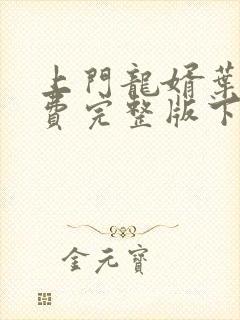 上門龍婿葉
費完整版下
金元寶